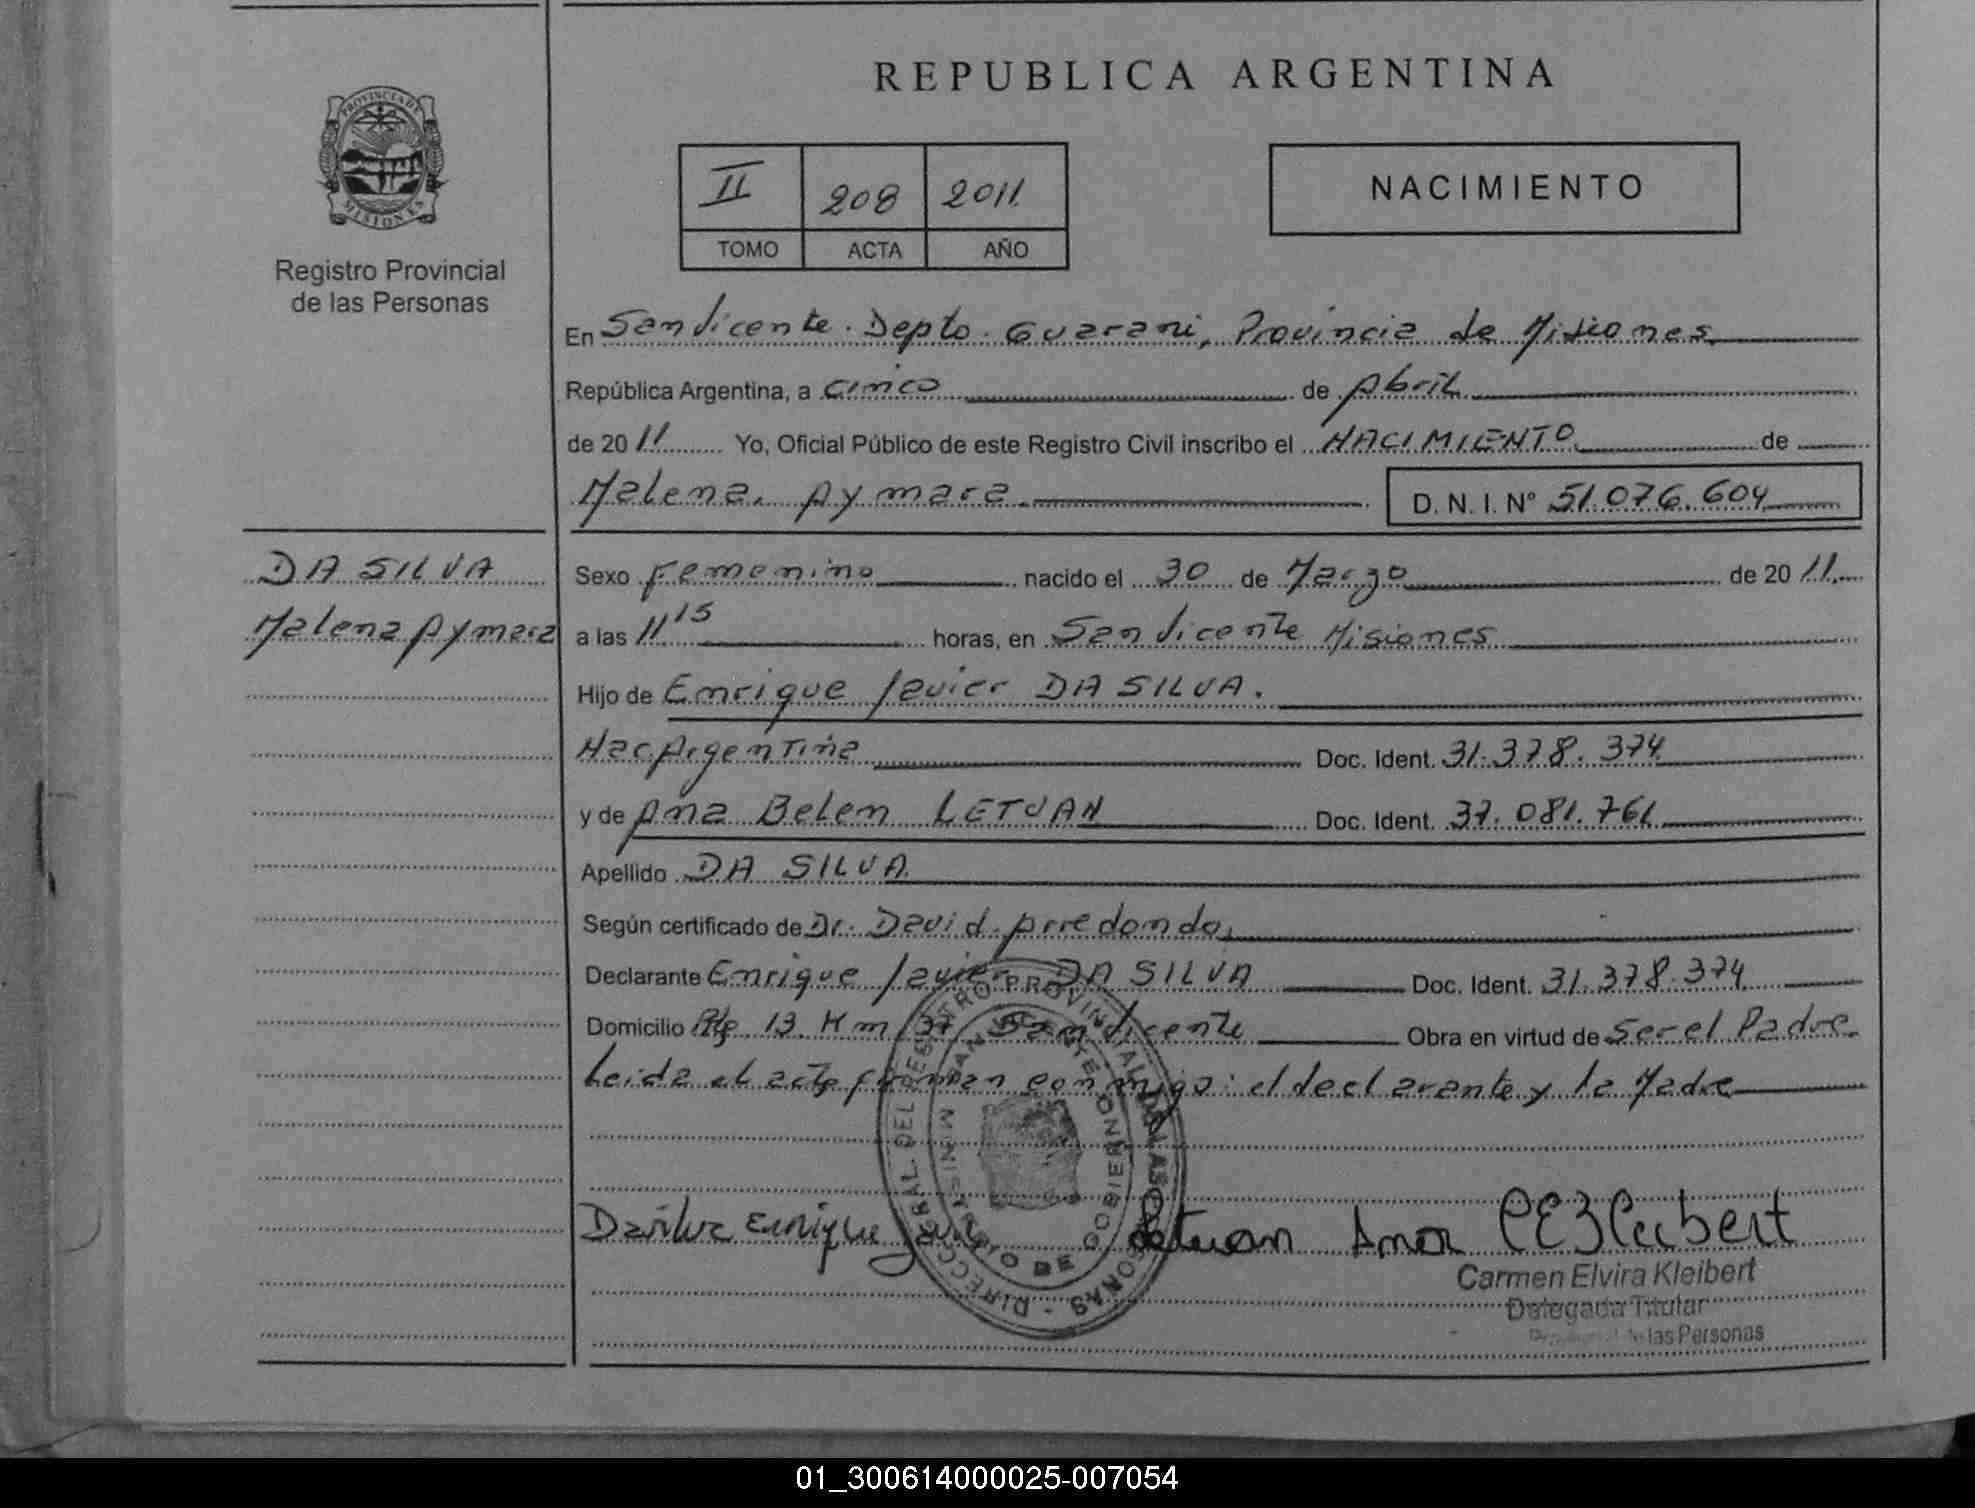 REPUBLICA ARGENTINA
PROVINCIA DE
MISIONES
Registro Provincial
de las Personas
II 208 2011
TOMO ACTA AÑO
NACIMIENTO
En San Vicente. Depto. Guarani, Provincia de Misiones
República Argentina, a cinco de Abril
de 2011 Yo, Oficial Público de este Registro Civil inscribo el NACIMIENTO de
Malena. Aymara D. N. I. Nº 51.076.604
DA SILVA
Malena Aymara
Sexo Femenino nacido el 30 de Marzo de 2011
a las 11 15 horas, en San Vicente Misiones
Hijo de Enrique Javier DA SILVA.
Nac. Argentina Doc. Ident. 31.378.374
y de Ana Belen LETUAN Doc. Ident. 37.081.761
Apellido DA SILVA
Según certificado de Dr. David Arredondo
Declarante Enrique Javier DA SILVA Doc. Ident. 31.378.374
Domicilio Rta 13 Km 37 San Vicente Obra en virtud de Ser el Padre
Leida el acta firman conmigo: el declarante y la Madre
Dasilva Enrique Letuan Ana CEKleibert
Carmen Elvira Kleibert
Delegada Titular
de las Personas
01_300614000025-007054